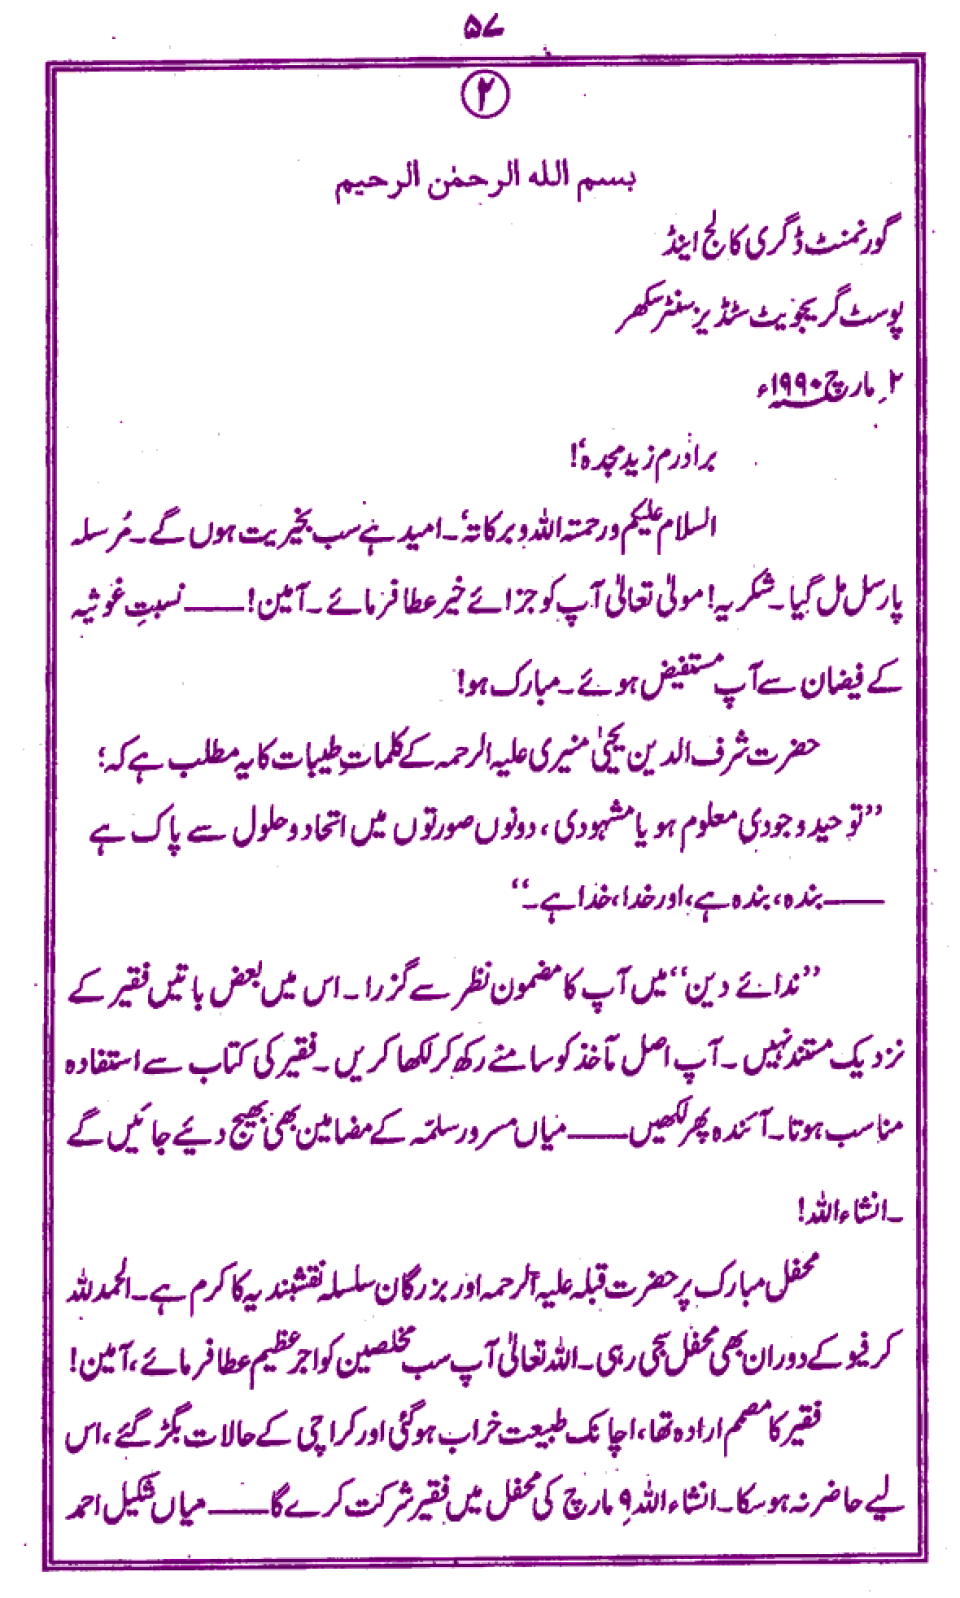 ۵۷
۲
بسم الله الرحمٰن الرحیم
گورنمنٹ ڈگری کالج اینڈ
پوسٹ گریجویٹ سٹڈیز سنٹر سکھر
۲؍ مارچ ۱۹۹۰ء
برادرم زید مجدہٗ!
السلام علیکم ورحمتہ اللہ وبرکاتہٗ۔ امید ہے سب بخیریت ہوں گے۔ مُرسلہ
پارسل مل گیا۔ شکریہ! مولیٰ تعالیٰ آپ کو جزائے خیر عطا فرمائے۔ آمین! ——— نسبتِ غوثیہ
کے فیضان سے آپ مستفیض ہوئے۔ مبارک ہو!
حضرت شرف الدین یحییٰ منیری علیہ الرحمہ کے کلماتِ طیبات کا یہ مطلب ہے کہ؛
’’توحید وجودی معلوم ہو یا مشہودی، دونوں صورتوں میں اتحاد و حلول سے پاک ہے
——— بندہ، بندہ ہے، اور خدا، خدا ہے۔‘‘
’’ندائے دین‘‘ میں آپ کا مضمون نظر سے گزرا۔ اس میں بعض باتیں فقیر کے
نزدیک مستند نہیں۔ آپ اصل مآخذ کو سامنے رکھ کر لکھا کریں۔ فقیر کی کتاب سے استفادہ
مناسب ہوتا۔ آئندہ پھر لکھیں ——— میاں مسرور سلمّہ کے مضامین بھی بھیج دئیے جائیں گے
۔ انشاء اللہ!
محفل مبارک پر حضرت قبلہ علیہ الرحمہ اور بزرگان سلسلہ نقشبندیہ کا کرم ہے۔ الحمدللہ
کرفیو کے دوران بھی محفل سجی رہی۔ اللہ تعالیٰ آپ سب مخلصین کو اجر عظیم عطا فرمائے، آمین!
فقیر کا مصمم ارادہ تھا، اچانک طبیعت خراب ہوگئی اور کراچی کے حالات بگڑ گئے، اس
لیے حاضر نہ ہو سکا۔ انشاء اللہ ۹؍ مارچ کی محفل میں فقیر شرکت کرے گا ——— میاں شکیل احمد